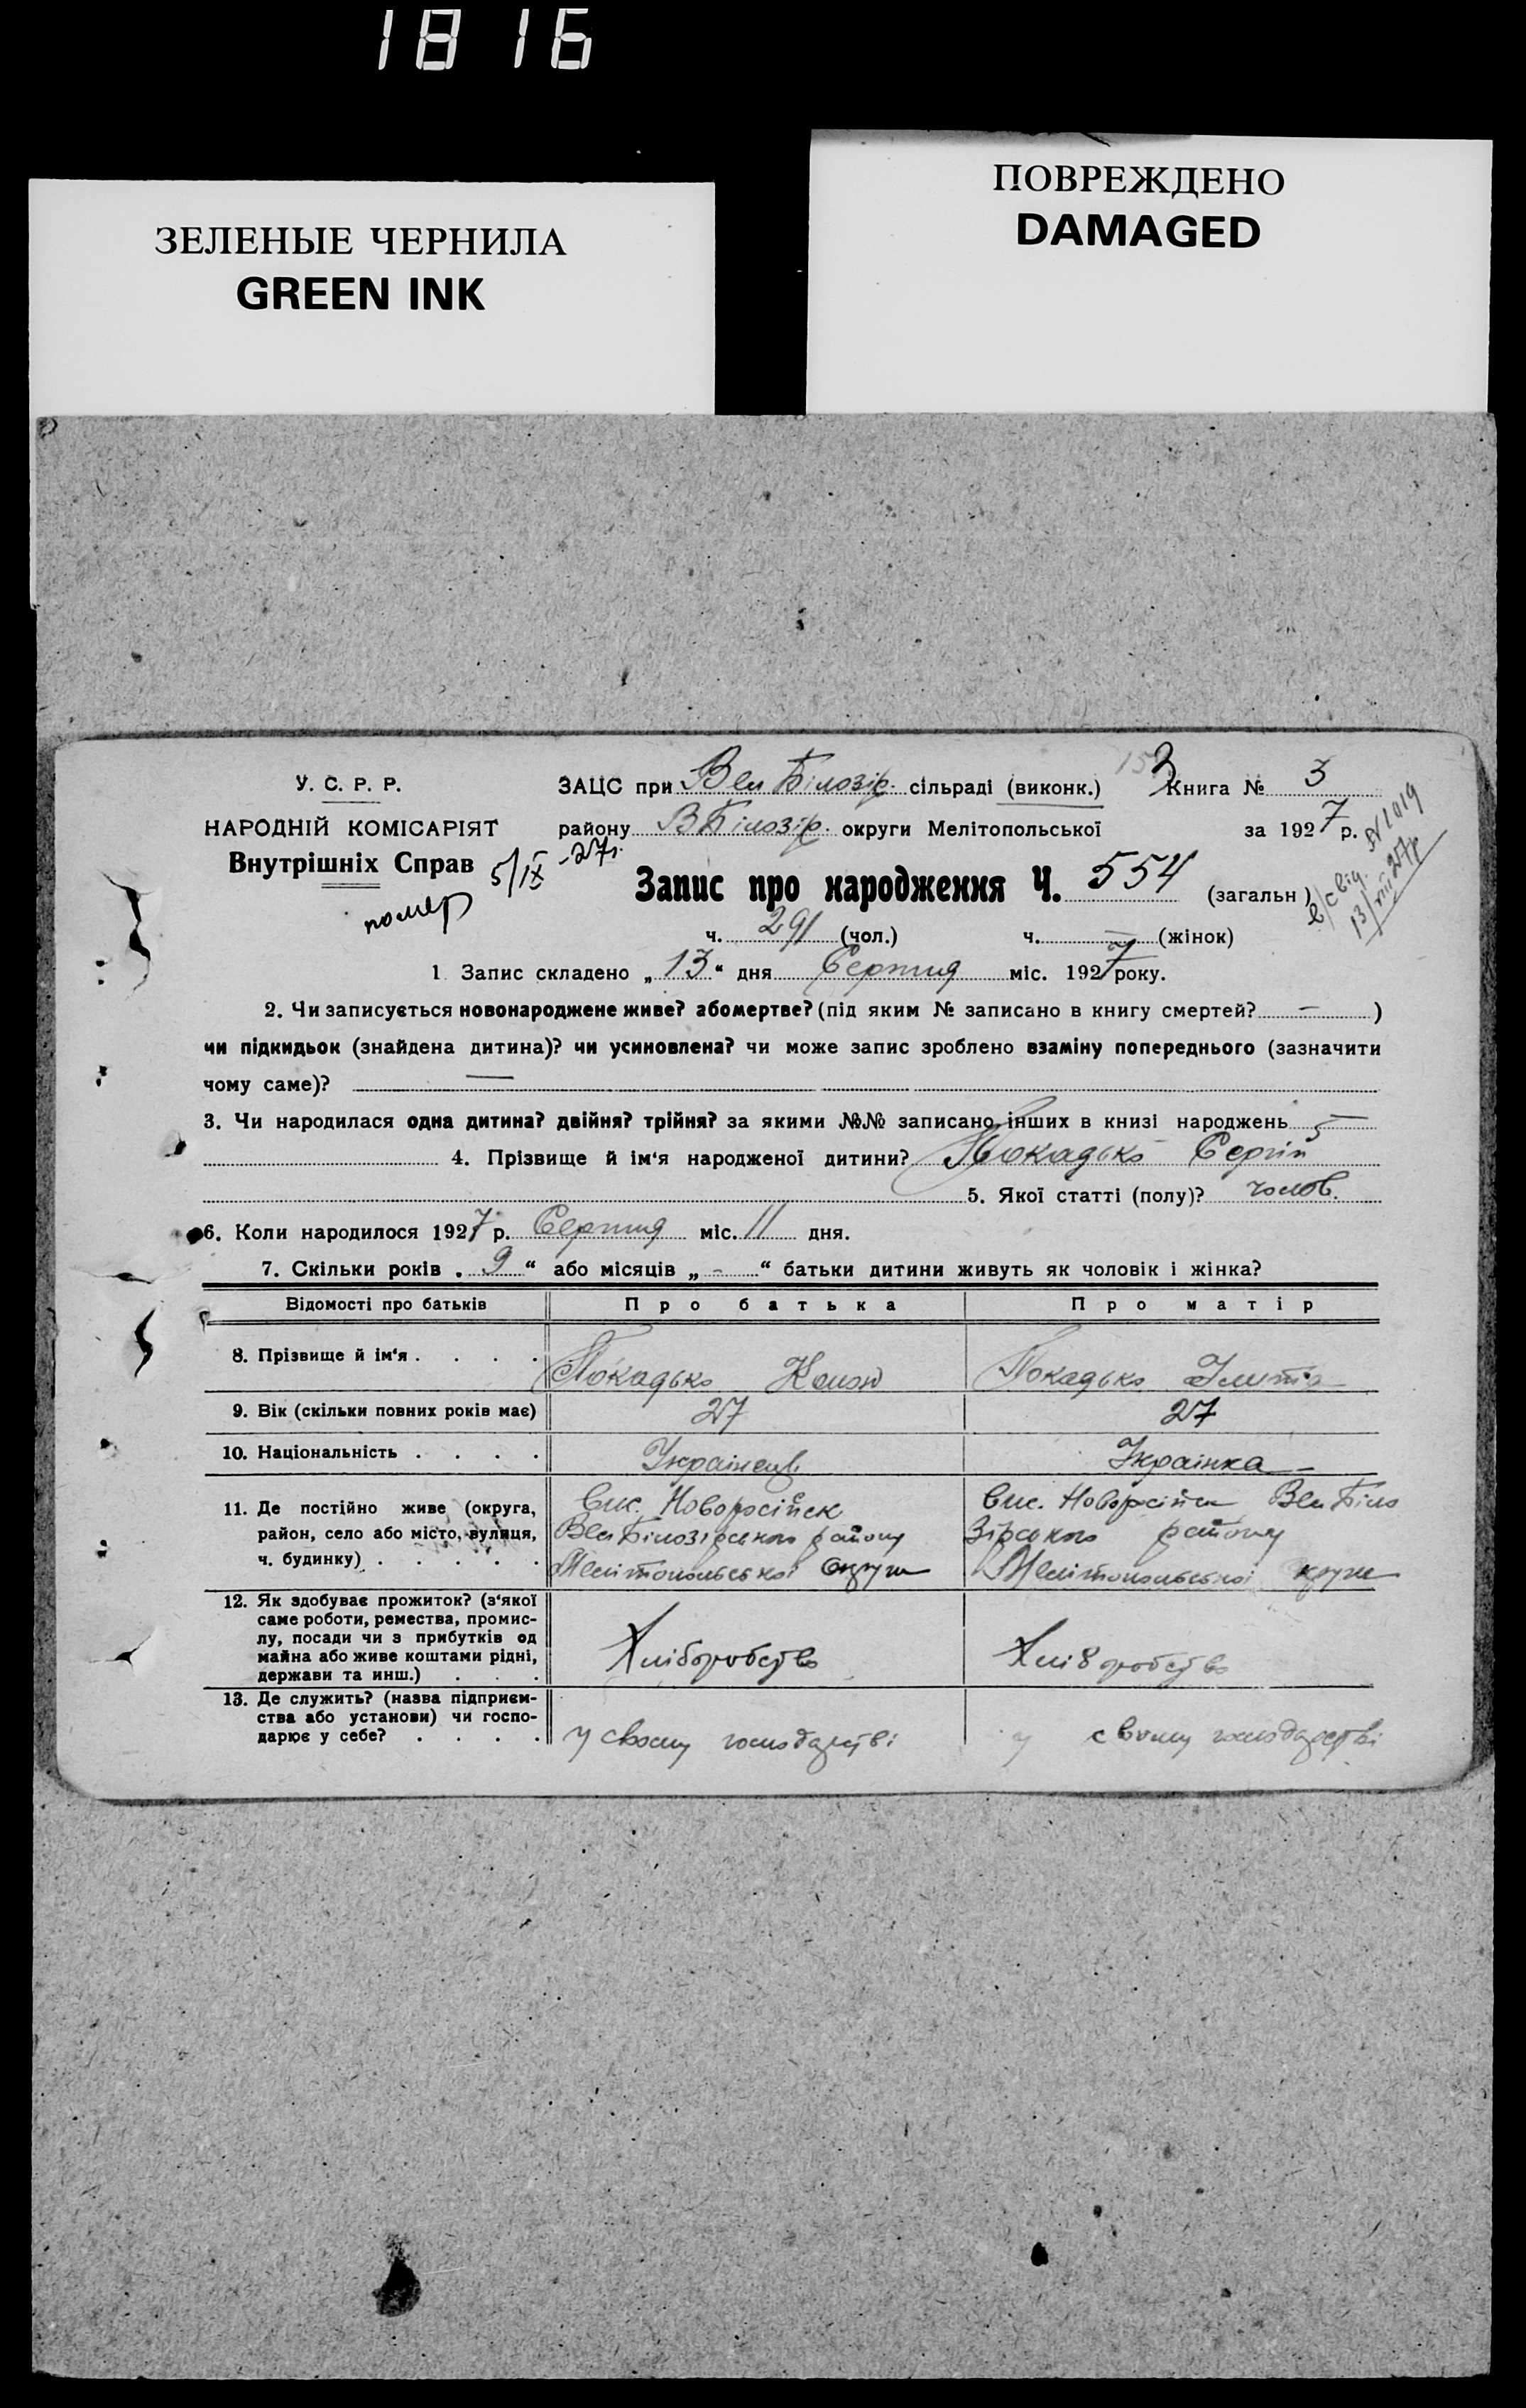 1816
ЗЕЛЕНЫЕ ЧЕРНИЛА
GREEN INK
ПОВРЕЖДЕНО
DAMAGED
У. С. Р. Р.
НАРОДНІЙ КОМІСАРІЯТ
Внутрішніх Справ
5/IX -27р.
помер
ЗАЦС при Вел Білозір. сільраді (виконк.) Книга № 3
району ВБілозір. округи Мелітопольської за 1927 р.
Запис про народження Ч. 554 (загальн)
13/VIII 27р
ч. 291 (чол.) ч. — (жінок)
1 Запис складено „13“ дня Серпня міс. 1927 року.
2. Чи записується новонароджене живе? або мертве? (під яким № записано в книгу смертей? — )
чи підкидьок (знайдена дитина)? чи усиновлена? чи може запис зроблено взаміну попереднього (зазначити
чому саме)? —
3. Чи народилася одна дитина? двійня? трійня? за якими №№ записано інших в книзі народжень —
4. Прізвище й ім‘я народженої дитини? Покадько Сергій
5. Якої статті (полу)? чолов.
6. Коли народилося 1927 р. Серпня міс. 11 дня.
7. Скільки років „9“ або місяців „-“ батьки дитини живуть як чоловік і жінка?
Відомості про батьків Про батька Про матір
8. Прізвище й ім‘я . . . . Покадько Конон Покадько
9. Вік (скільки повних років має) 27 27
10. Національність . . . . Українець Українка
11. Де постійно живе (округа,
район, село або місто, вулиця,
ч. будинку) . . . . .
Вис. Новоросійск
Вел Білозірського району
Мелітопольської округи
Вис. Новоросійск Вел Біло
зірського району
Мелітопольської круги
12. Як здобуває прожиток? (з‘якої
саме роботи, ремества, промис-
лу, посади чи з прибутків од
майна або живе коштами рідні,
держави та инш.) . . .
Хліборобство
Хліборобство
13. Де служить? (назва підприєм-
ства або установи) чи госпо-
дарює у себе? . . . .
у своєму господарстві
у своєму господарстві